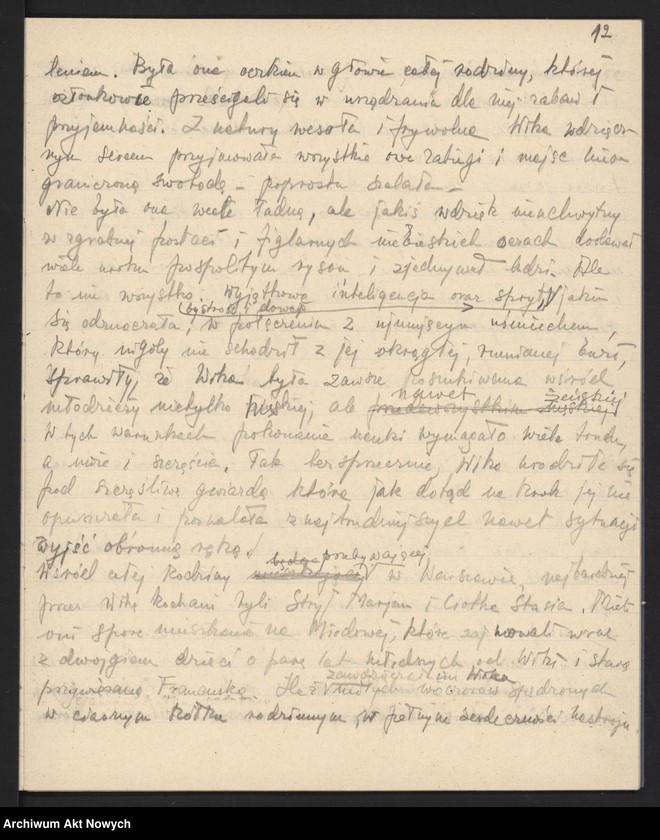 12
leniem. Była ona oczkiem w głowie całej rodziny, której
członkowie prześcigali się w urządzaniu dla niej zabaw i
przyjemności. Z natury wesoła i frywolna Wika wdzięcz-
nym sercem przyjmowała wszystkie owe zabiegi i mając nieo-
graniczoną swobodę – poprostu szalała –
Nie była ona wcale ładną, ale jakiś wdzięk nieuchwytny
w zgrabnej postaci i figlarnych niebieskich oczach dodawał
wiele uroku pospolitym rysom i zjednywał ludzi. Ale
to nie wszystko. Wyjątkowa inteligencja oraz spryt, jakim
(bystrość i dowcip
się odznaczała, w połączeniu z ujmującym uśmiechem,
który nigdy nie schodził z jej okrągłej, rumianej buzi,
sprawiły, że Wika była zawsze poszukiwana wśród
nawet żeńskiej
młodzieży nietylko męskiej, ale przedewszystkim męskiej
W tych warunkach pokonanie nauki wymagało wiele trudu,
a może i szczęścia. Tak bezsprzecznie, Wika urodziła się
pod szczęśliwą gwiazdą która jak dotąd na krok jej nie
opuszczała i pozwalała z najtrudniejszych nawet sytuacji
wyjść obronną ręką!
będąc przebywającej
Wśród całej Rodziny mieszkającej w Warszawie, najbardziej
przez Wikę kochani byli Stryj Marjan i Ciotka Stasia. Mieli
oni spore mieszkanie na Miodowej, które zajmowali wraz
z dwojgiem dzieci o parę lat młodszych od Wiki i starą
przywiązaną Franciszką. Ileż miłych wieczorów spędzonych
zawdzięczała im Wika
w ciasnym kółku rodzinnym, w pełnym serdeczności nastroju
Archiwum Akt Nowych